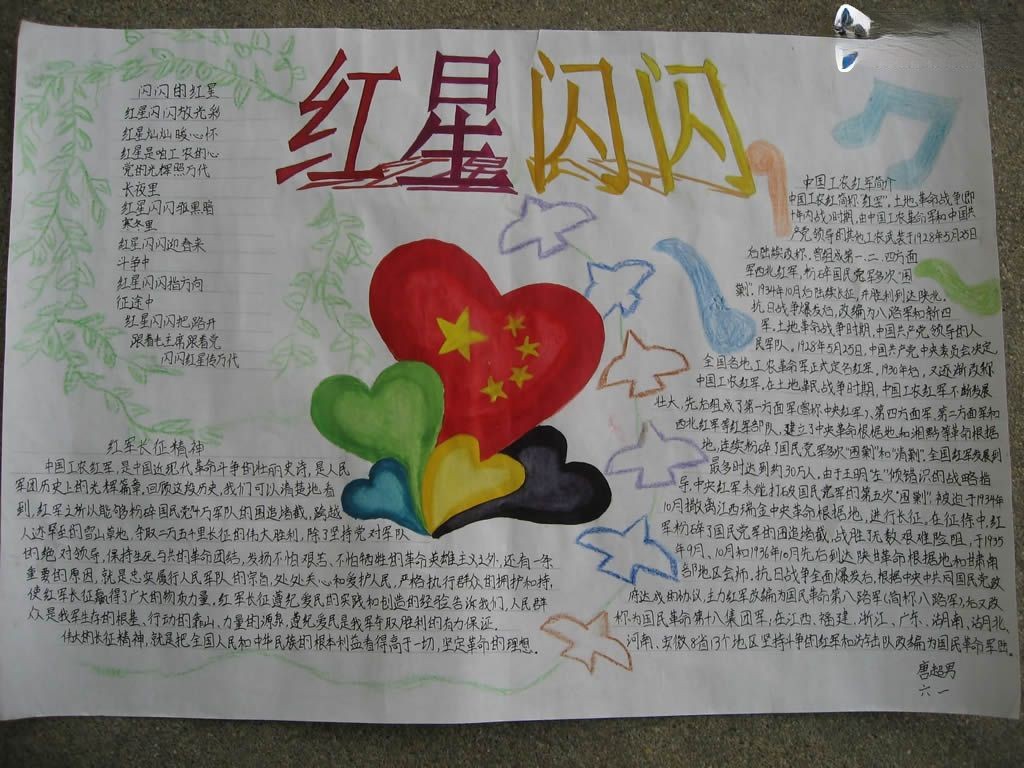 红星闪闪
闪闪的红星
红星闪闪放光彩
红星灿灿暖心怀
红星是咱工农的心
党的光辉照万代
长夜里
红星闪闪驱黑暗
寒冬里
红星闪闪迎春来
斗争中
红星闪闪指方向
征途中
红星闪闪把路开
跟着毛主席跟着党
闪闪红星传万代
红军长征精神
中国工农红军,是中国近现代革命斗争的壮丽史诗,是人民
军团历史上的光辉篇章,回顾这段历史,我们可以清楚地看
到,红军之所以能够粉碎国民党军队的围追堵截,跨越
人迹罕至的雪山草地,夺取二万五千里长征的伟大胜利,除了坚持党对军队
的绝对领导,保持生死与共的革命团结,发扬不怕艰苦、不怕牺牲的革命英雄主义外,还有一条
重要的原因,就是忠实履行人民军队的宗旨,处处关心和爱护人民,严格执行群众的拥护和持,
使红军长征赢得了广大的物质力量,红军长征遵纪爱民的实践和创造的经验告诉我们,人民群
众是我军生存的根基、行动的靠山、力量的源泉,遵纪爱民是我军夺取胜利的有力保证。
伟大的长征精神,就是把全国人民和中华民族的根本利益看得高于一切,坚定革命的理想。
中国工农红军简介
中国工农红简称"红军"。土地革命战争(即
十年内战)时期,由中国工农革命军和中国共
产党领导的其他工农武装于1928年5月25日
后陆续改称,曾组成第一、二、四方面
军西北红军,粉碎国民党军多次"围
剿"。1934年10月后陆续长征,并胜利到达陕北。
抗日战争爆发后,改编为八路军和新四
军。土地革命战争时期,中国共产党领导的人
民军队。1928年5月25日,中国共产党中央委员会决定
全国各地工农革命军正式定名红军,1930年后,又逐渐改称
中国工农红军。在土地革命战争时期,中国工农红军不断发展
壮大,先后组成了第一方面军(曾称中央红军)、第四方面军、第二方面军和
西北红军等红军部队。建立了中央革命根据地和湘鄂等革命根据
地,连续粉碎了国民党军多次"围剿"和"清剿"。全国红军发展到
最多时达到约30万人。由于王明"左"倾错误的战略指
导,中央红军未能打破国民党军的第五次"围剿",被迫于1934年
10月撤离江西瑞金中央革命根据地,进行长征,在征徐中,红
军粉碎了国民党军的围追堵截,战胜了无数艰难险阻,于1935
年9月、10月和1936年10月先后到达陕甘革命根据地和甘肃南
部地区会师。抗日战争全面爆发后,根据中央中共同国民党政
府达成的协议,主力红军改编为国民革命第八路军(简称八路军),后又改
称为国民革命第十八集团军,在江西、福建、浙江、广东、湖南、湖北、
河南、安徽8省13个地区坚持斗争的红军和游击队改编为国民革命军陆。
唐超男
六一